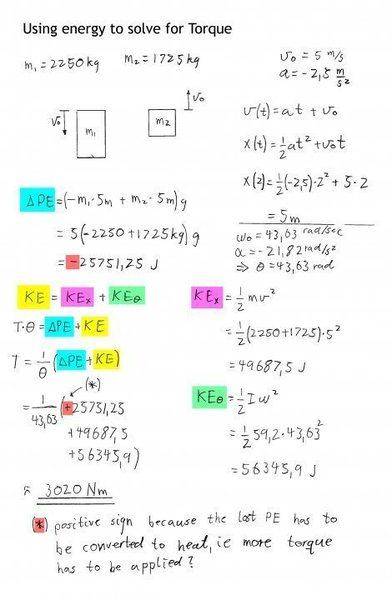 Using energy to solve for Torque
m₁ = 2250 kg   m₂ = 1725 kg
v₀ = 5 m/s
a = -2,5 m/s²
v₀ m₁   m₂ v₀
v(t) = at + v₀
x(t) = ½at² + v₀t
x(2) = ½(-2,5)·2² + 5·2
= 5m
ω₀ = 43,63 rad/sec
α = -21,82 rad/s²
⇒ θ = 43,63 rad
ΔPE = (-m₁·5m + m₂·5m)g
= 5(-2250+1725kg)g
= -25751,25 J
KE = KEₓ + KEθ
T·θ = ΔPE + KE
T = 1/θ (ΔPE + KE)
(*)
= 1/43,63 (+25751,25
+49687,5
+56345,9)
≈ 3020 Nm
KEₓ = ½mv²
= ½(2250+1725)·5²
= 49687,5 J
KEθ = ½Iω²
= ½59,2·43,63²
= 56345,9 J
(*) positive sign because the lost PE has to
be converted to heat, ie more torque
has to be applied?